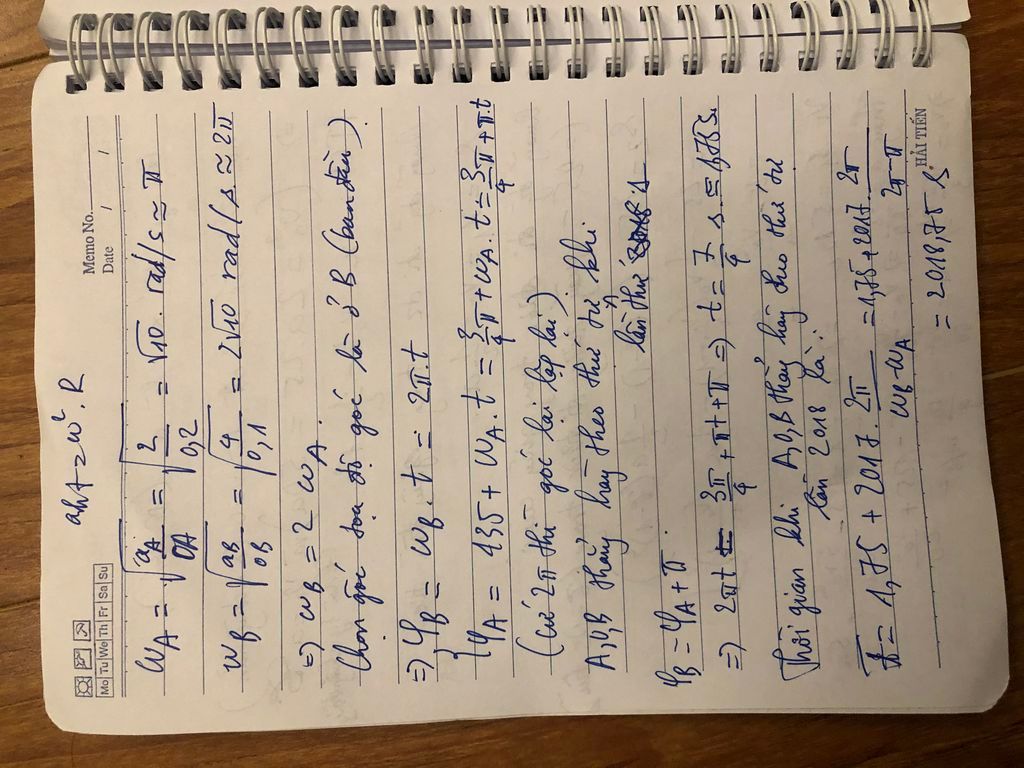 Memo No.
Date / /
Mo Tu We Th Fr Sa Su
aht = ω². R
ω_A = √(a_A/OA) = √(2/0,2) = √10 . rad/s ≈ π
ω_B = √(a_B/OB) = √(4/0,1) = 2√10 rad/s ≈ 2π
=> ω_B = 2 ω_A.
Chọn gốc tọa độ góc là ở B (ban đầu).
=> { φ_B = ω_B . t = 2π.t
φ_A = 135 + ω_A . t = 3/4 π + ω_A . t = 3/4 π + π.t
(cứ 2π thì góc lại lặp lại)
A,O,B thẳng hàng theo thứ tự khi
lần thứ 1
φ_B = φ_A + π.
=> 2πt = 3π/4 + πt + π => t = 7/4 s = 1,75s.
Thời gian khi A,O,B thẳng hàng theo thứ tự
lần 2018 là:
= 1,75 + 2017. 2π/(ω_B - ω_A) = 1,75 + 2017. 2π/(2π - π)
= 2018,75 s
HẢI TIẾN